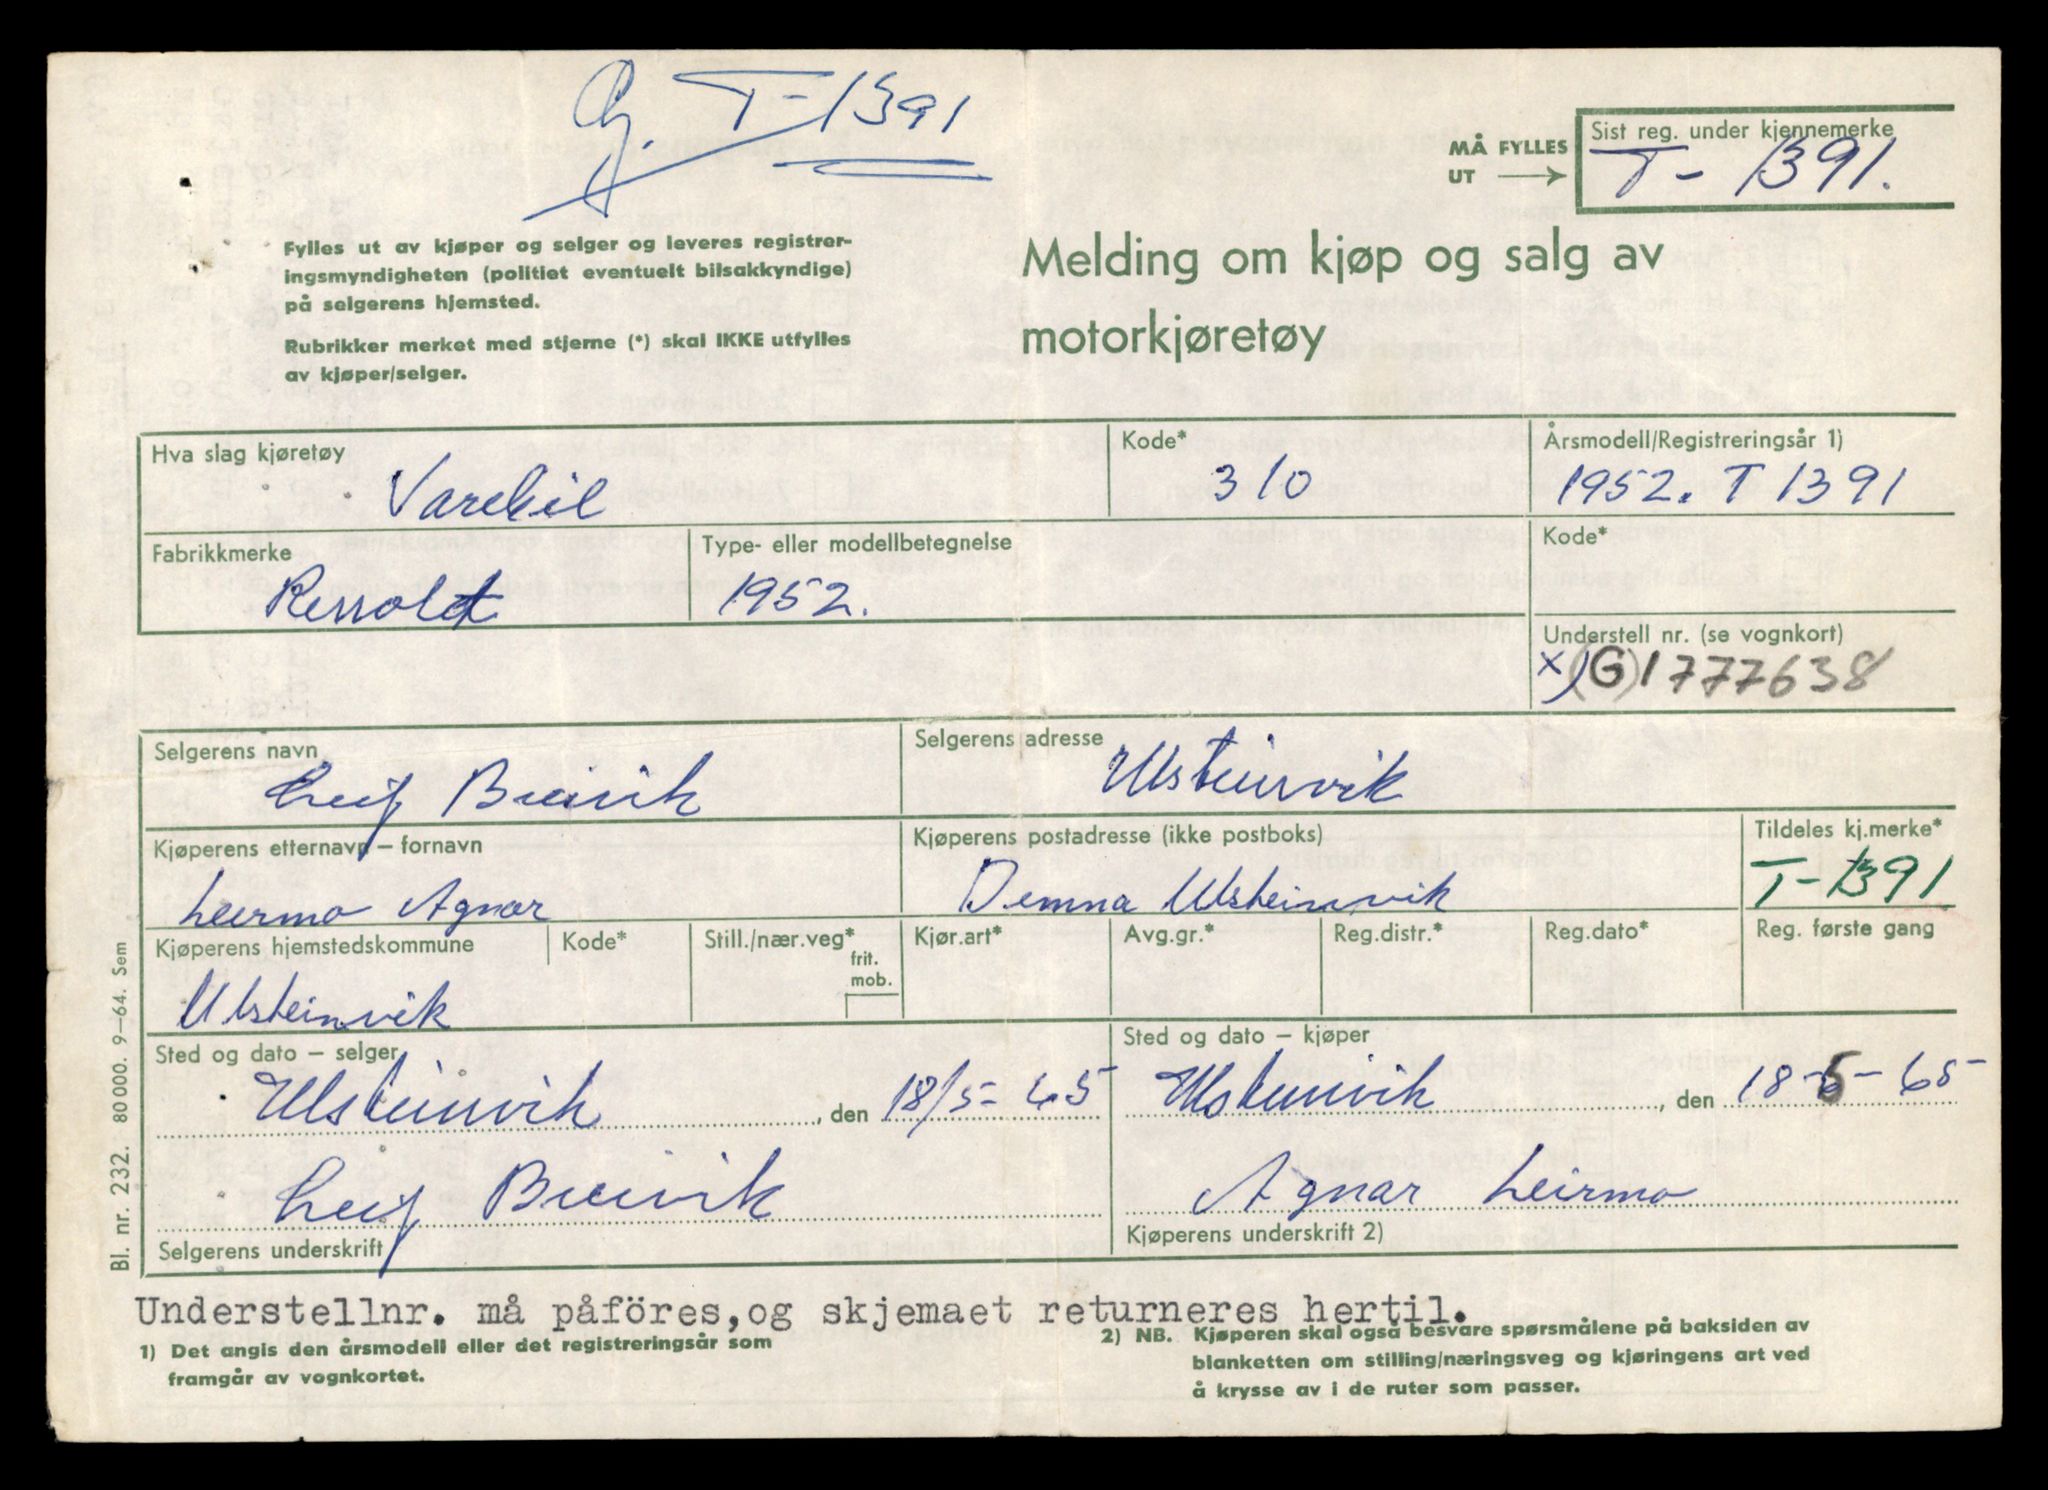 T-1391
MÅ FYLLES
UT
Sist reg. under kjennemerke
T-1391.
Fylles ut av kjøper og selger og leveres registrer-
ingsmyndigheten (politiet eventuelt bilsakkyndige)
på selgerens hjemsted.
Rubrikker merket med stjerne (*) skal IKKE utfylles
av kjøper/selger.
Melding om kjøp og salg av
motorkjøretøy
Hva slag kjøretøy
Varebil
Kode*
310
Årsmodell/Registreringsår 1)
1952. T 1391
Fabrikkmerke
Type- eller modellbetegnelse
1952.
Kode*
Understell nr. (se vognkort)
x) (G)1777638
Selgerens navn
Leif Breivik
Selgerens adresse
Ulsteinvik
Kjøperens etternavn – fornavn
Leirmo Agnar
Kjøperens postadresse (ikke postboks)
Demna Ulsteinvik
Tildeles kj.merke*
T-1391
Kjøperens hjemstedskommune
Ulsteinvik
Kode*
Still./nær.veg*
frit.
mob.
Kjør.art*
Avg.gr.*
Reg.distr.*
Reg.dato*
Reg. første gang
Sted og dato – selger
Ulsteinvik, den 18/5-65
Sted og dato – kjøper
Ulsteinvik, den 18-5-65
Leif Breivik
Selgerens underskrift
Agnar Leirmo
Kjøperens underskrift 2)
Bl. nr. 232. 80 000. 9–64. Sem
Understellnr. må påföres,og skjemaet returneres hertil.
1) Det angis den årsmodell eller det registreringsår som
framgår av vognkortet.
2) NB. Kjøperen skal også besvare spørsmålene på baksiden av
blanketten om stilling/næringsveg og kjøringens art ved
å krysse av i de ruter som passer.